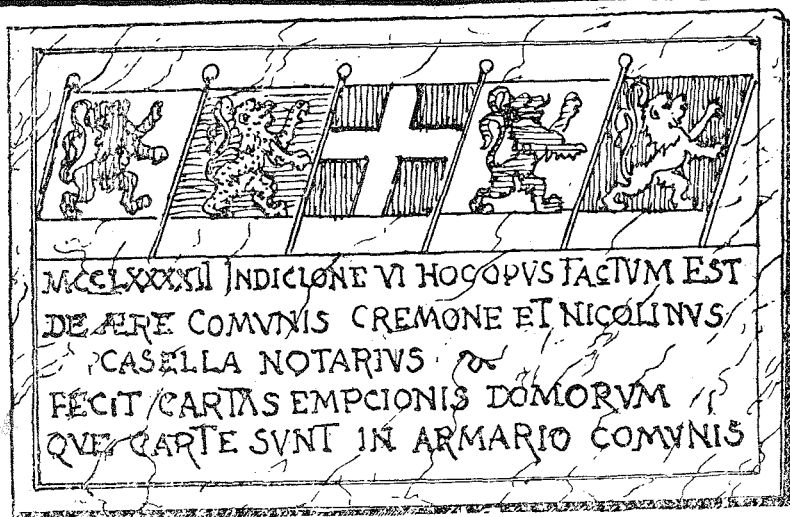 MCCLXXXXII INDICIONE VI HOC OPVS FACTVM EST
DE ÆRE COMVNIS CREMONE ET NICOLINVS
CASELLA NOTARIVS
FECIT CARTAS EMPCIONIS DOMORVM
QVE CARTE SVNT IN ARMARIO COMVNIS